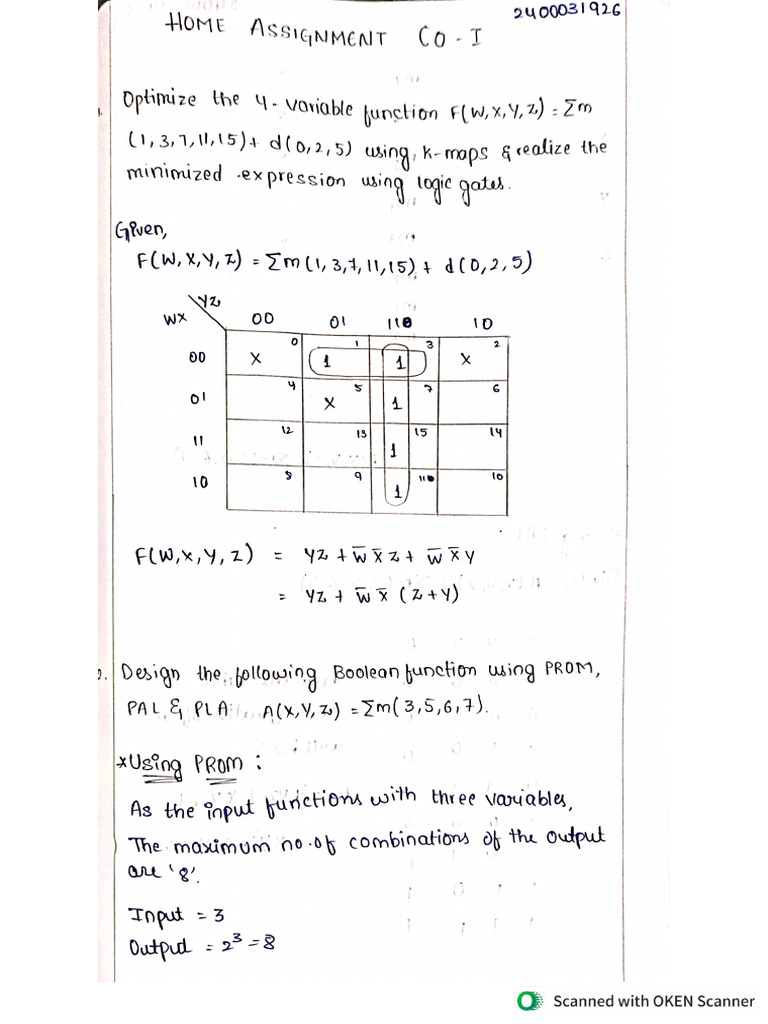 2400031926
HOME ASSIGNMENT CO-I
1. Optimize the 4-variable function F(W,X,Y,Z) = Σm
(1,3,7,11,15) + d(0,2,5) using K-maps & realize the
minimized expression using logic gates.
Given,
F(W,X,Y,Z) = Σm(1,3,7,11,15) + d(0,2,5)
YZ
WX 00 01 11 10
00 X 0 1 1 1 3 X 2
01 4 X 5 1 7 6
11 12 13 1 15 14
10 8 9 1 11 10
F(W,X,Y,Z) = YZ + W̅ X̅ Z + W̅ X̅ Y
= YZ + W̅ X̅ (Z+Y)
2. Design the following Boolean function using PROM,
PAL & PLA A(X,Y,Z) = Σm(3,5,6,7).
*Using PROM :
As the input functions with three variables,
The maximum no.of combinations of the output
are '8'.
Input = 3
Output = 2³ = 8
Scanned with OKEN Scanner